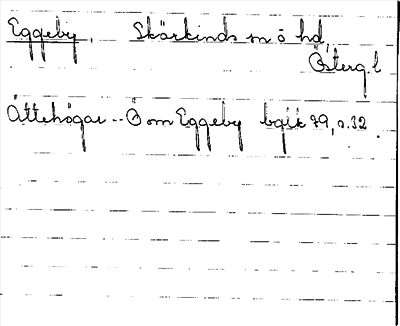 Eggeby, Skärkinds sn o hd,
Österg.l
Ättehögar -- Ö om Eggeby bgik 79, s.32.